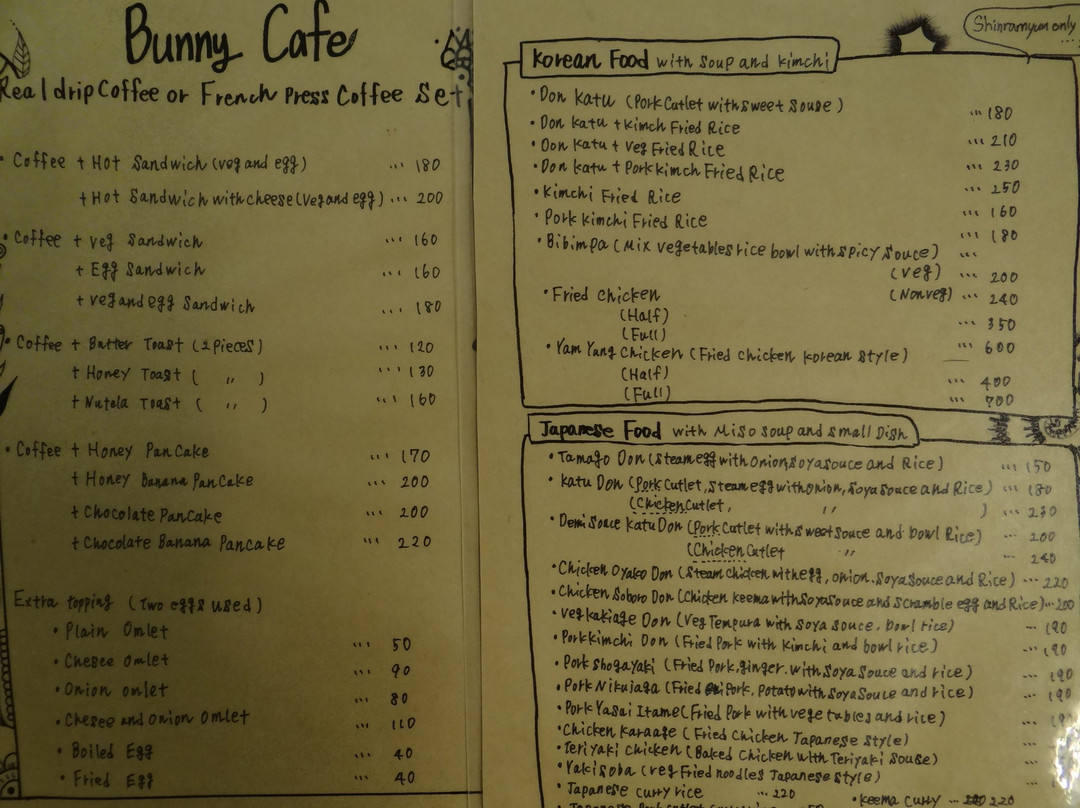 Bunny Cafe
Real drip Coffee or French Press Coffee Set
• Coffee + Hot Sandwich (veg and egg) ... 180
+ Hot Sandwich with cheese (Veg and egg) ... 200
• Coffee + veg Sandwich ... 160
+ Egg Sandwich ... 160
+ veg and egg Sandwich ... 180
• Coffee + Butter Toast (2 pieces) ... 120
+ Honey Toast ( " ) ... 130
+ Nutela Toast ( " ) ... 160
• Coffee + Honey PanCake ... 170
+ Honey Banana PanCake ... 200
+ Chocolate PanCake ... 200
+ Chocolate Banana PanCake ... 220
Extra topping (Two eggs used)
• Plain Omlet ... 50
• Chesee Omlet ... 90
• Onion omlet ... 80
• Chesee and Onion Omlet ... 110
• Boiled Egg ... 40
• Fried Egg ... 40
Shinramyun only
Korean Food with soup and kimchi
• Don Katu (Pork Cutlet with sweet Souse) ... 180
• Don Katu + Kimch Fried Rice ... 210
• Don Katu + Veg Fried Rice ... 230
• Don katu + Pork kimch Fried Rice ... 250
• Kimchi Fried Rice ... 160
• Pork Kimchi Fried Rice ... 180
• Bibimpa (Mix vegetables rice bowl with spicy souce) ...
(veg) 200
(Nonveg) ... 240
• Fried chicken
(Half) ... 350
(Full) ... 600
• Yam Yung Chicken (Fried chicken korean style)
(Half) ... 400
(Full) ... 700
Japanese Food with Miso soup and small Dish
• Tamago Don (Steam egg with Onion, Soya Souce and Rice) ... 150
• Katu Don (Pork Cutlet, Steam egg with onion, Soya Souce and Rice) ... 180
(Chicken Cutlet, " ) ... 230
• Demi Souce Katu Don (Pork Cutlet with sweet souce and bowl Rice) ... 200
(Chicken Cutlet " ... 240
• Chicken Oyako Don (Steam Chicken with egg, onion. Soya Souce and Rice) ... 220
• Chicken Soboro Don (Chicken keema with Soya Souce and scramble egg and Rice) ... 200
• Veg Kakiage Don (Veg Tempura with Soya souce, bowl rice) ... 190
• Pork Kimchi Don (Fried Pork with Kimchi and bowl rice) ... 190
• Pork Shogayaki (Fried Pork, ginger. with Soya Souce and rice) ... 190
• Pork Nikujaga (Fried Pork, Potato with Soya Souce and rice) ... 190
• Pork Yasai Itame (Fried Pork with vegetables and rice) ... 190
• Chicken Karaage (Fried Chicken Japanese Style)
• Teriyaki Chicken (Baked Chicken with Teriyaki Souse)
• Yaki soba (veg Fried noodles Japanese style)
• Japanese curry rice ... 220
• Keema curry ... 220